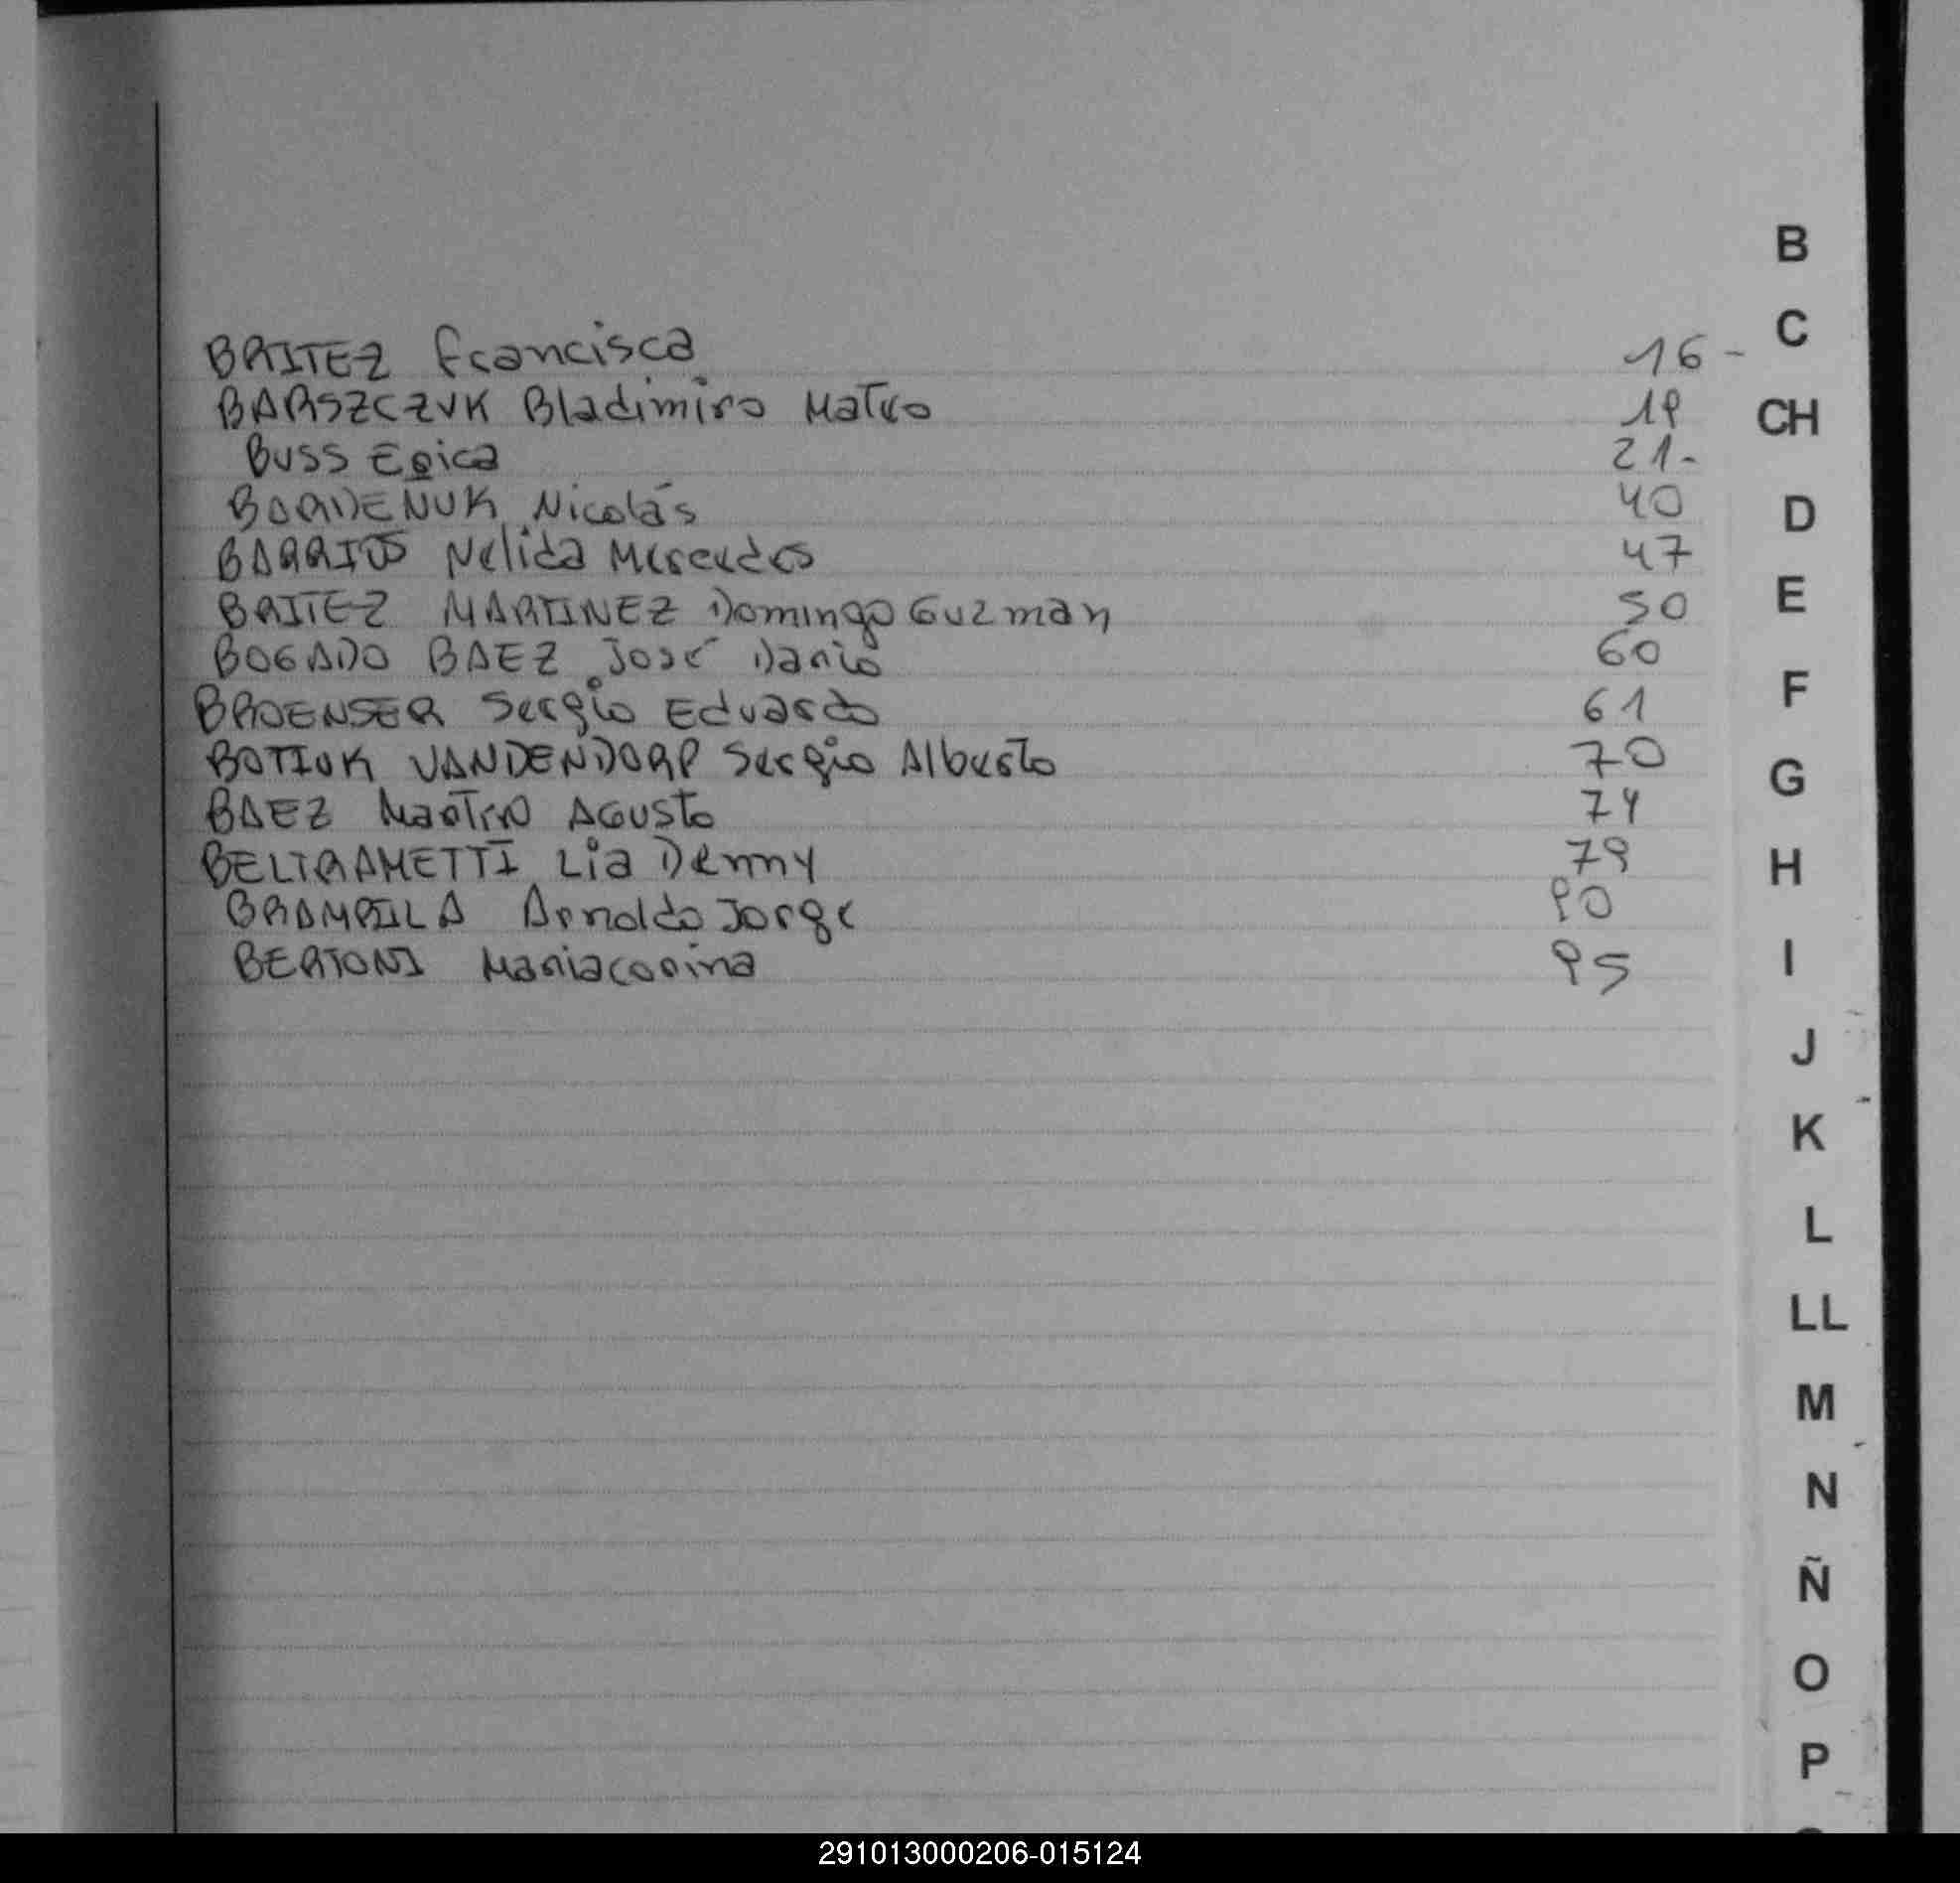 BRITEZ Francisca 16-
BARSZCZUK Bladimiro Mateo 19
BUSS Erica 21-
Nicolás 40
BARRIOS Nelida Mercedes 47
BRITEZ MARTINEZ Domingo Guzman 50
BOGADO BAEZ José Dario 60
BROENSER Sergio Eduardo 61
BOTIUK VANDENDORP Sergio Alberto 70
BAEZ AGUSTO 74
BELTRAMETTI Lia Denny 79
BRAMBILLA Arnoldo Jorge 90
BERTONI Mariacorina 95
B
C
CH
D
E
F
G
H
I
J
K
L
LL
M
N
Ñ
O
P
291013000206-015124